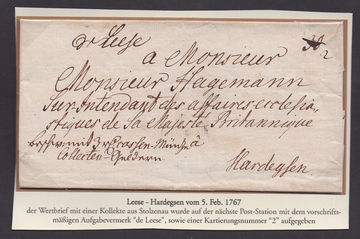 de Leese
2
a Monsieur
Monsieur Hagemann
Sur-Intendant des affaires ecclesia,
stiques de Sa Majesté Britannique
a
Collecten-Geldern
Hardegsen
Leese - Hardegsen vom 5. Feb. 1767
der Wertbrief mit einer Kollekte aus Stolzenau wurde auf der nächste Post-Station mit dem vorschrifts-
mäßigen Aufgabevermerk "de Leese", sowie einer Kartierungsnummer "2" aufgegeben